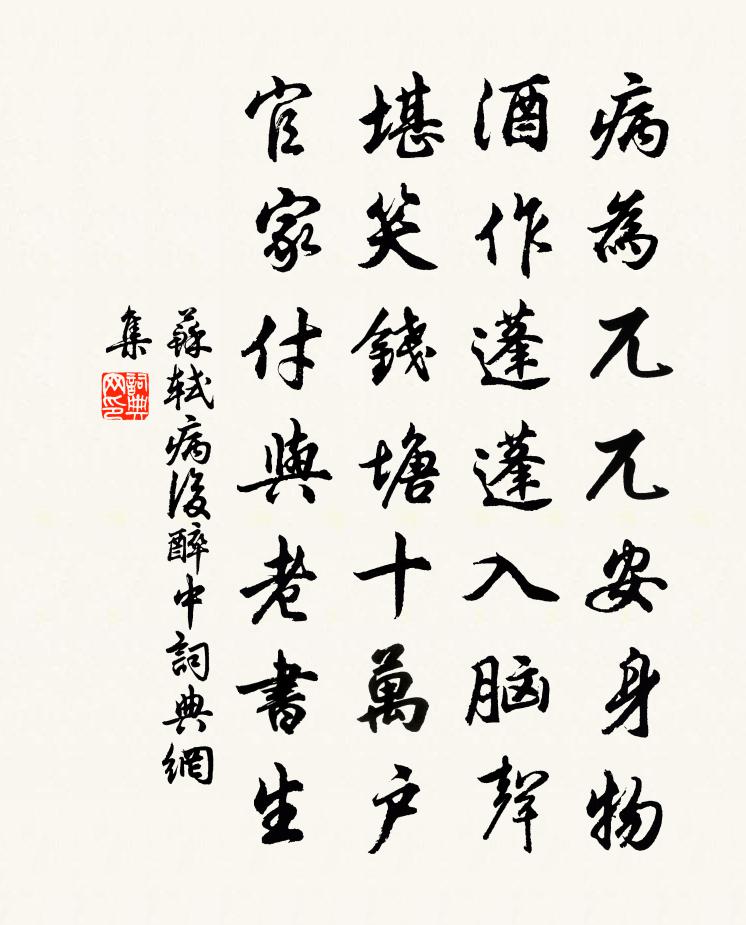 病為兀兀安身物
酒作蓬蓬入脑聲
堪笑錢塘十萬户
官家付與老書生
蘇軾病後醉中詞典網
集
詞典
網印